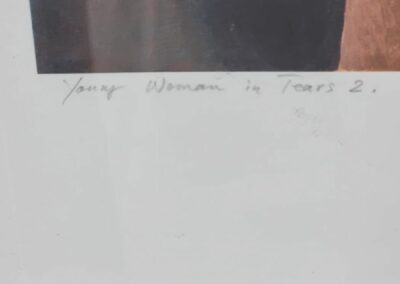 Young Woman in Tears 2.